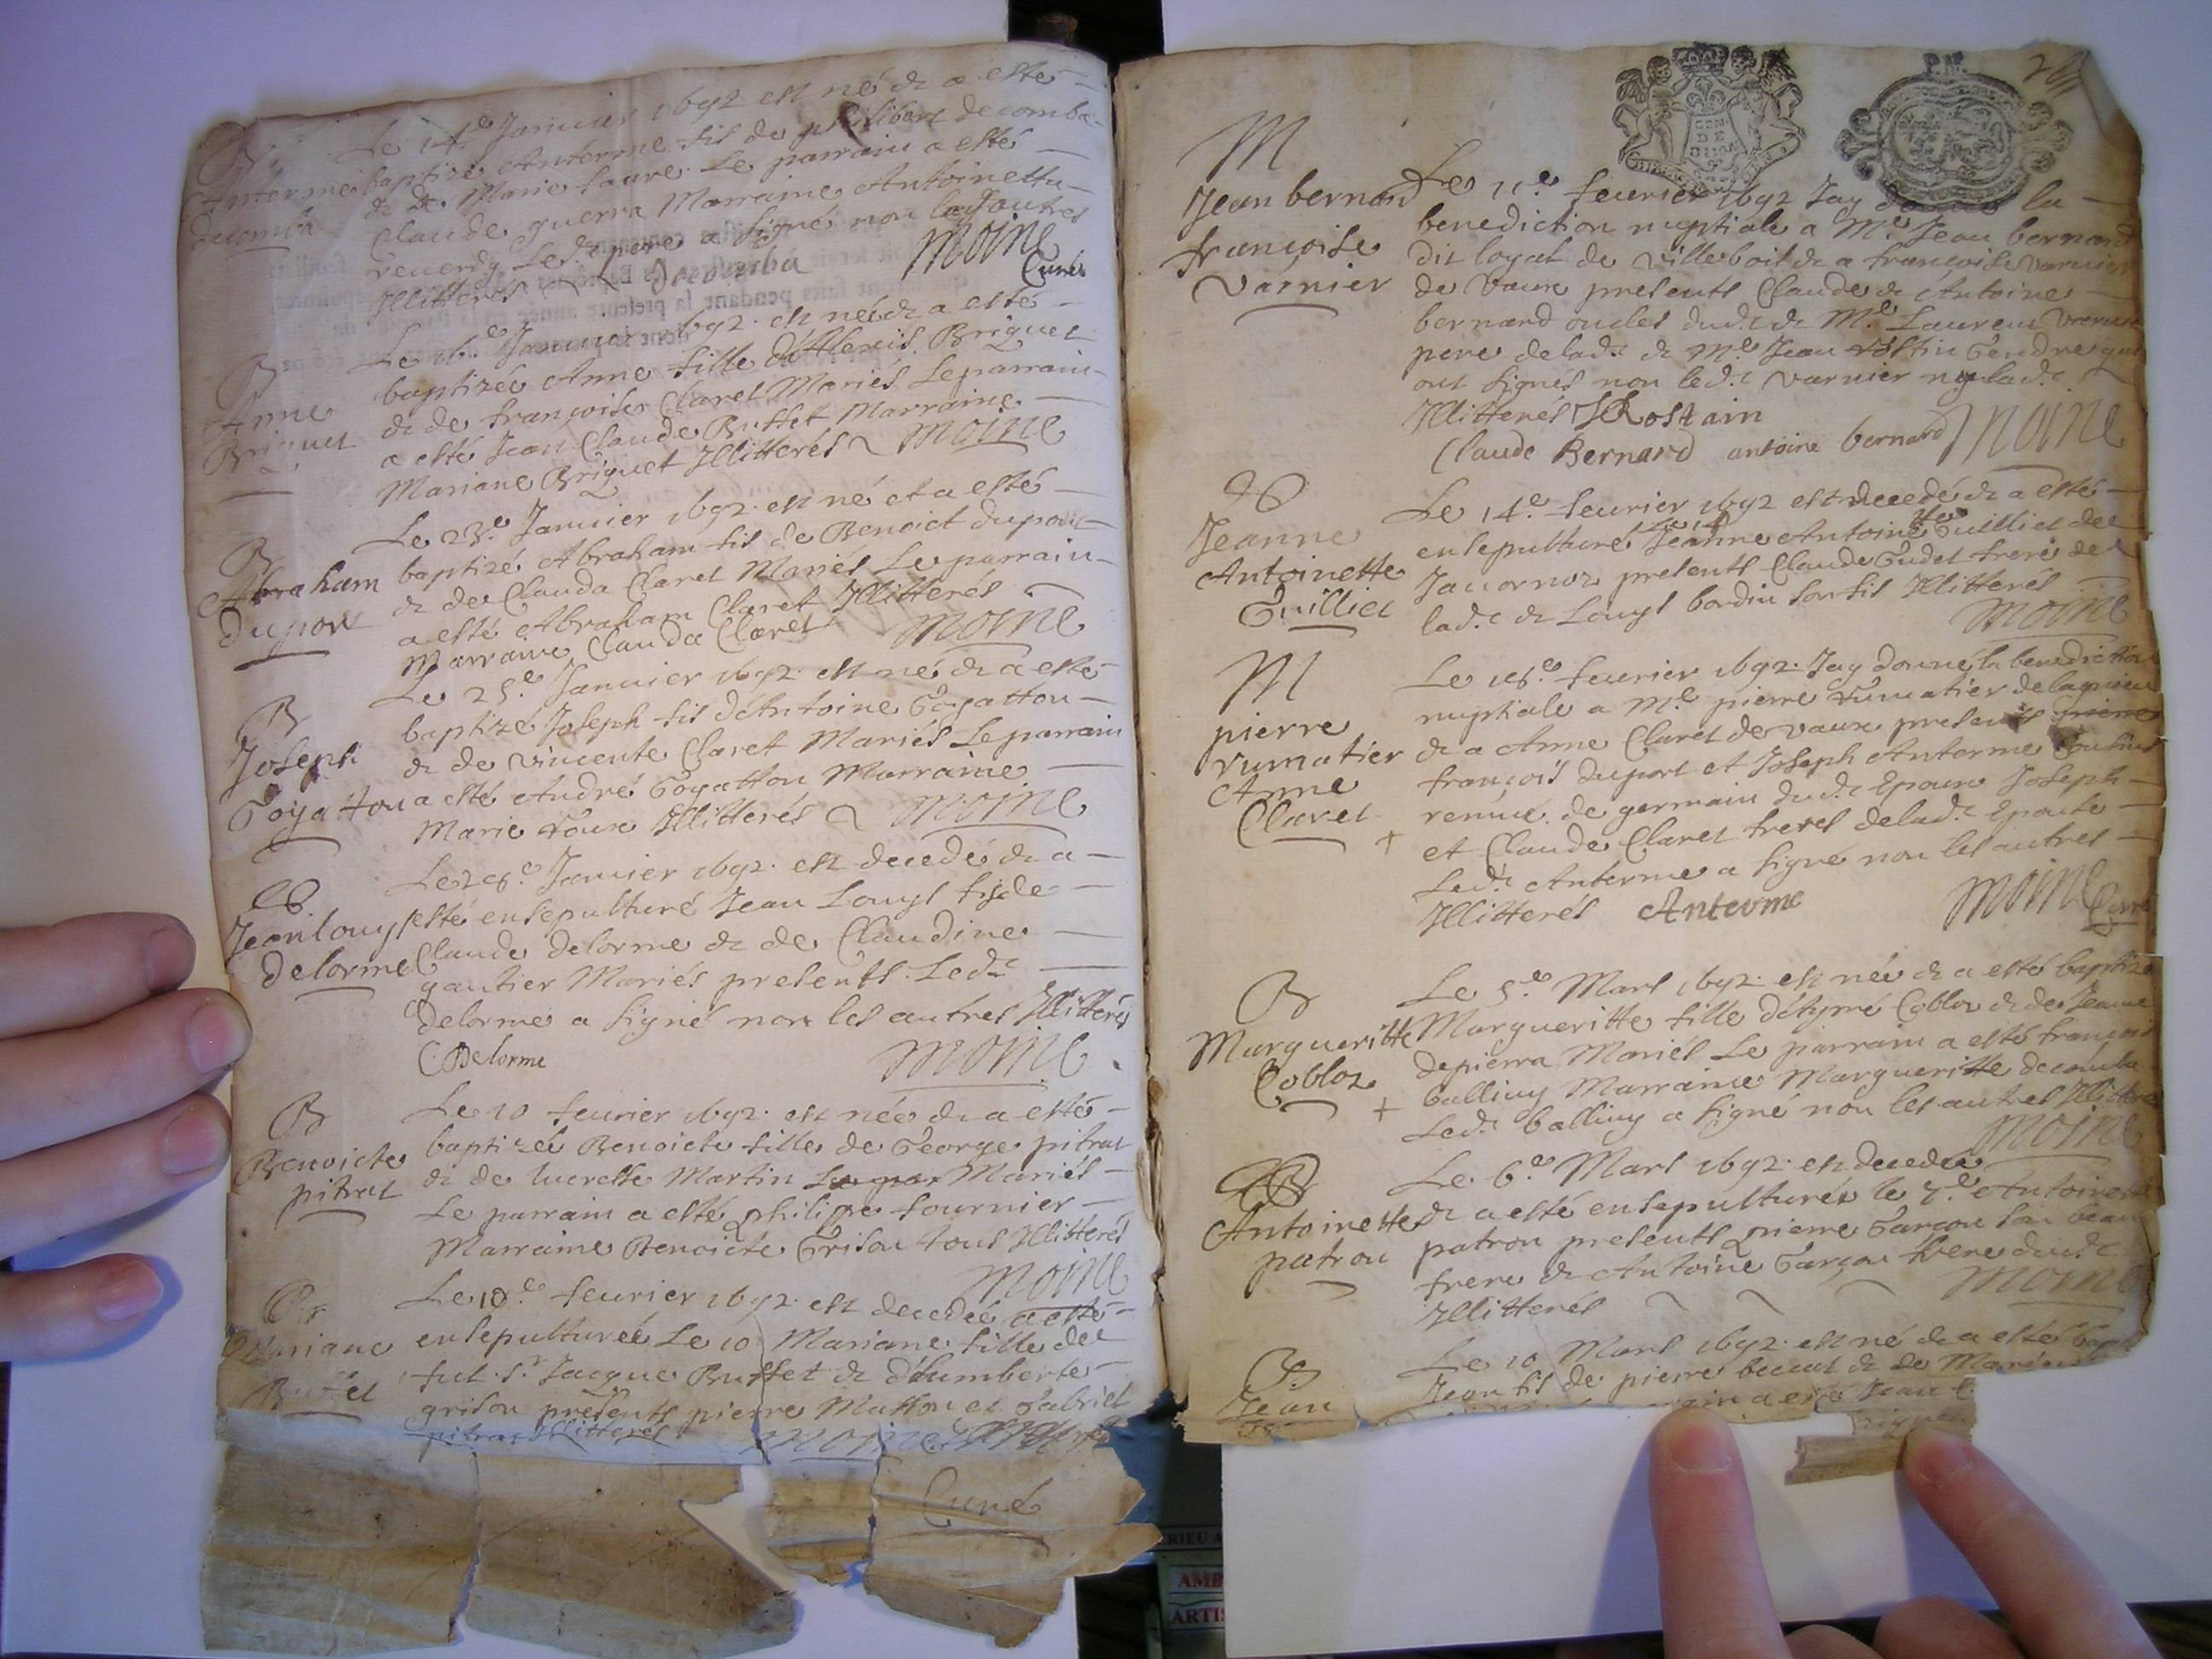 B
Anterme
decomba
Le 14e Januier 1692 est né & a esté
baptizé Anterme fils de philibert decomba
& de Marie faure. Le parrain a esté
Claude guerra Marraine Antoinette
reuerdy Led. pere a signé non les autres
Illitterés Decomba Moine
Curé
B
Anne
Briquet
Le 16e Januier 1692. est née & a esté
baptizée Anne fille d'Alexis Briquet
& de françoise Claret Mariés Le parrain
a esté Jean Claude Buffet Marraine
Mariane Briquet Illitterés Moine
B
Abraham
dupont
Le 23e Januier 1692 est né et a esté
baptizé Abraham fils de Benoict dupont
& de Clauda Claret Mariés Le parrain
a esté Abraham Claret Illitterés
Marraine Clauda Claret Moine
B
Joseph
Goyatton
Le 25e Januier 1692 est né & a esté
baptizé Joseph fils d'Antoine Goyatton
& de vincente Claret Mariés Le parrain
a esté André Goyatton Marraine
Marie Roux Illitterés Moine
Jean louys
delorme
Le 26e Januier 1692. est decedé & a
esté ensepulturé Jean Louys fils de
Claude delorme & de Claudine
gautier Mariés presents. Led.
delorme a signé non les autres Illitterés
C Delorme Moine
B
Benoicte
pitrat
Le 10 feurier 1692. est née & a esté
baptizée Benoicte fille de George pitrat
& de lucresse Martin Le par Mariés
Le parrain a esté philipe fournier
Marraine Benoicte Grisou tous Illitterés
Moine
Mariane
Buffet
Le 10e feurier 1692. est decedée a esté
ensepulturée Le 10 Mariane fille de
fut Sr Jacque Buffet & d'humberte
grisou presents pierre Mutton et Gabriel
pitrat Illitterés Moine
Curé
M
Jean bernard
françoise
varnier
Le 11e feurier 1692 Jay donné la
benediction nuptiale a Me Jean bernard
dit loyat de villebois & a francoise varnier
de vaux presents Claude & Antoine
bernard oncles dud. & Me Laurent varnier
pere de lad. & Me Jean Rostin Gendre qui
ont signés non led. varnier ny lad.
Illitterés JRostain
Claude Bernard antoine bernard Moine
Jeanne
Antoinette
Guilliet
Le 14e feurier 1692 est decedé & a esté
ensepulturé Jeanne Antoinette Guilliet de
Jauornoz presents Claude Gudet frere de
lad. & Louys bordin son fils Illitterés
Moine
M
pierre
rumatier
Anne
Claret
Le 16e feurier 1692. Jay donné la benediction
nuptiale a Me pierre rumatier
& a Anne Claret de vaux presents pierre
françois duport et Joseph Anterme Cousins
remué de germain dud. Epoux Joseph
et Claude Claret freres de lad. Epouse
Led. Anterme a signé non les autres
Illitterés Anterme Moine Curé
B
Margueritte
Cobloz
Le 5e Mars 1692. est née & a esté baptizé
Margueritte fille d'étyne Cobloz & de Jeanne
depierra Mariés Le parrain a esté françois
balliuy Marraine Margueritte decomba
Led. balliuy a signé non les autres Illitterés
Moine
Antoinette
patron
Le 6e Mars 1692. est decedée
& a esté ensepulturée le 7e Antoinette
patron presents pierre Garçon son beau
frere & Antoine Garçon frere dud.
Illitterés Moine
B
Jean
Le 10 Mars 1692. est né & a esté bapt
Jean fils de pierre & de
a esté Jean